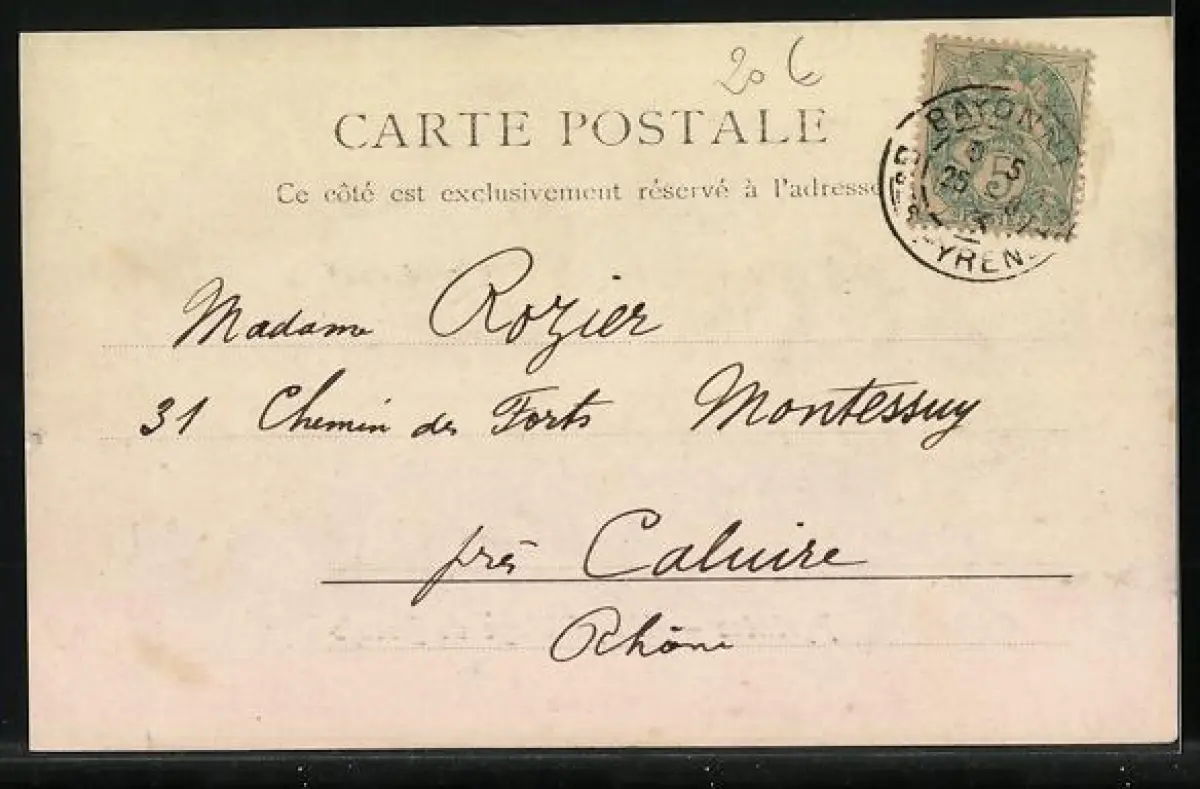 20 €
CARTE POSTALE
Ce côté est exclusivement réservé à l'adresse
BAYONN
25
5
PYREN
Madame Rozier
31 Chemin des Forts Montessuy
près Caluire
Rhône